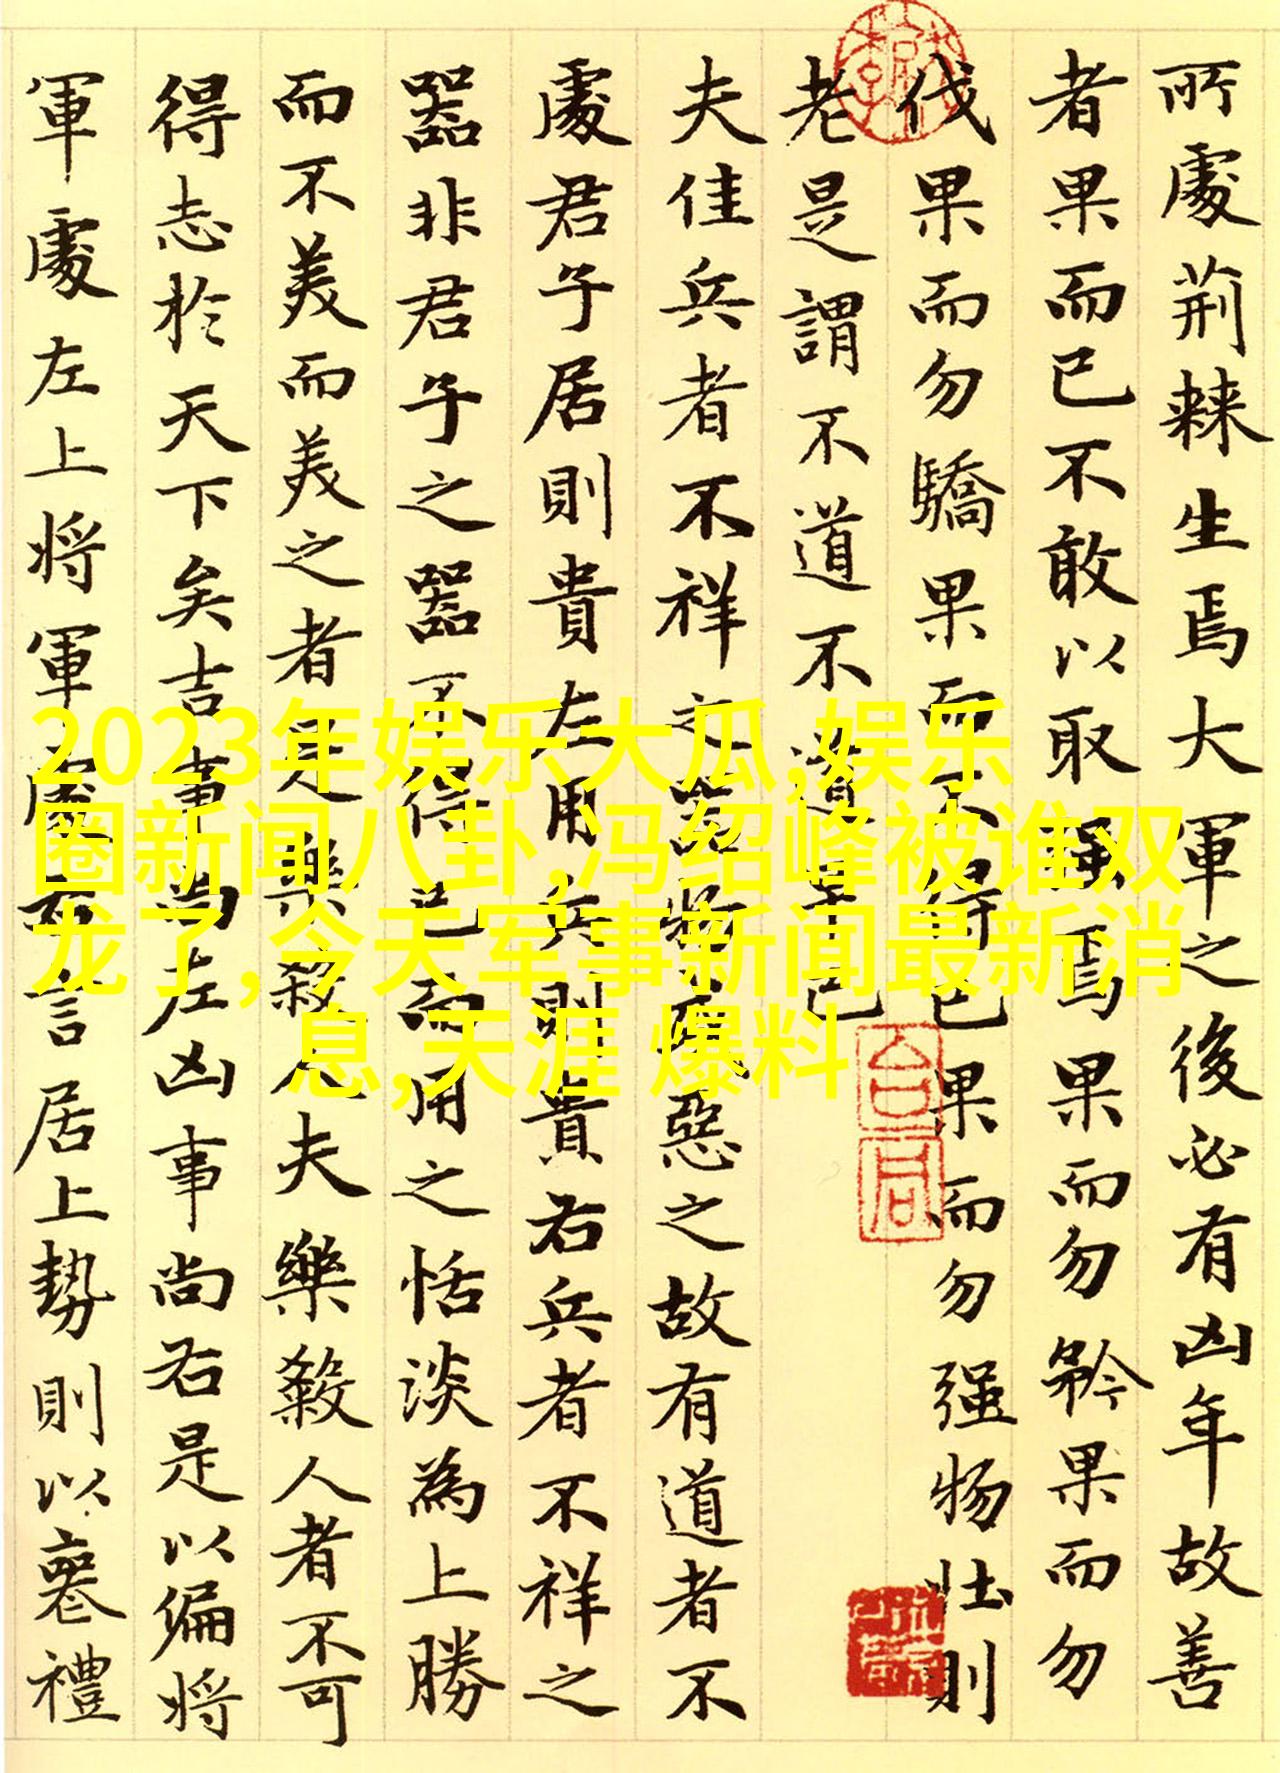 所處荊棘生焉大軍之後必有凶年故善
者果而已不敢以取强焉果而勿矜果而勿
伐果而勿驕果而不得已果而勿强物壮則
老是謂不道不道早已
夫佳兵者不祥之器物或惡之故有道者不
處君子居則貴左用兵則貴右兵者不祥之
器非君子之器不得已而用之恬淡為上勝
而不美而美之者是樂殺人夫樂殺人者不可
得志於天下矣吉事尚左凶事尚右是以偏將
軍處左上將軍處右言居上勢則以喪禮
2023年娱乐大瓜,娱乐
圈新闻八卦,冯绍峰被谁双
龙了,今天军事新闻最新消
息,天涯 爆料